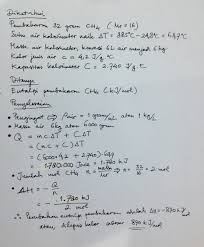 Diketahui
Pembakaran 32 gram CH4 (Mr = 16)
Suhu air kalorimeter naik ΔT = 38,5°C - 24,8°C = 63,7°C
Massa air kalorimeter, konversi 6L air menjadi 6 kg
Kalor jenis air c = 4,2 J/g °C
Kapasitas kalorimeter C = 2.740 J/g °C
Ditanya
Entalpi pembakaran CH4 (kJ/mol)
Penyelesaian
• Mengingat ⇒ ρair = 1 gram/ml atau 1 kg/L
• Massa air 6kg atau 6000 gram
• Q = m c ΔT + C ΔT
= (m c + C) ΔT
= (6000 4,2 + 2.740)
= 1.780.000 Joule = 1.780 kJ
• Jumlah mol CH4 n = massa/Mr ⇒ n = 32/16 = 2 mol
• ΔH = - Q/n
= - 1.780 kJ / 2 mol
∴ Perubahan entalpi pembakaran adalah ΔH = -890 kJ/mol
atau, dilepas kalor sebesar 890 kJ/mol